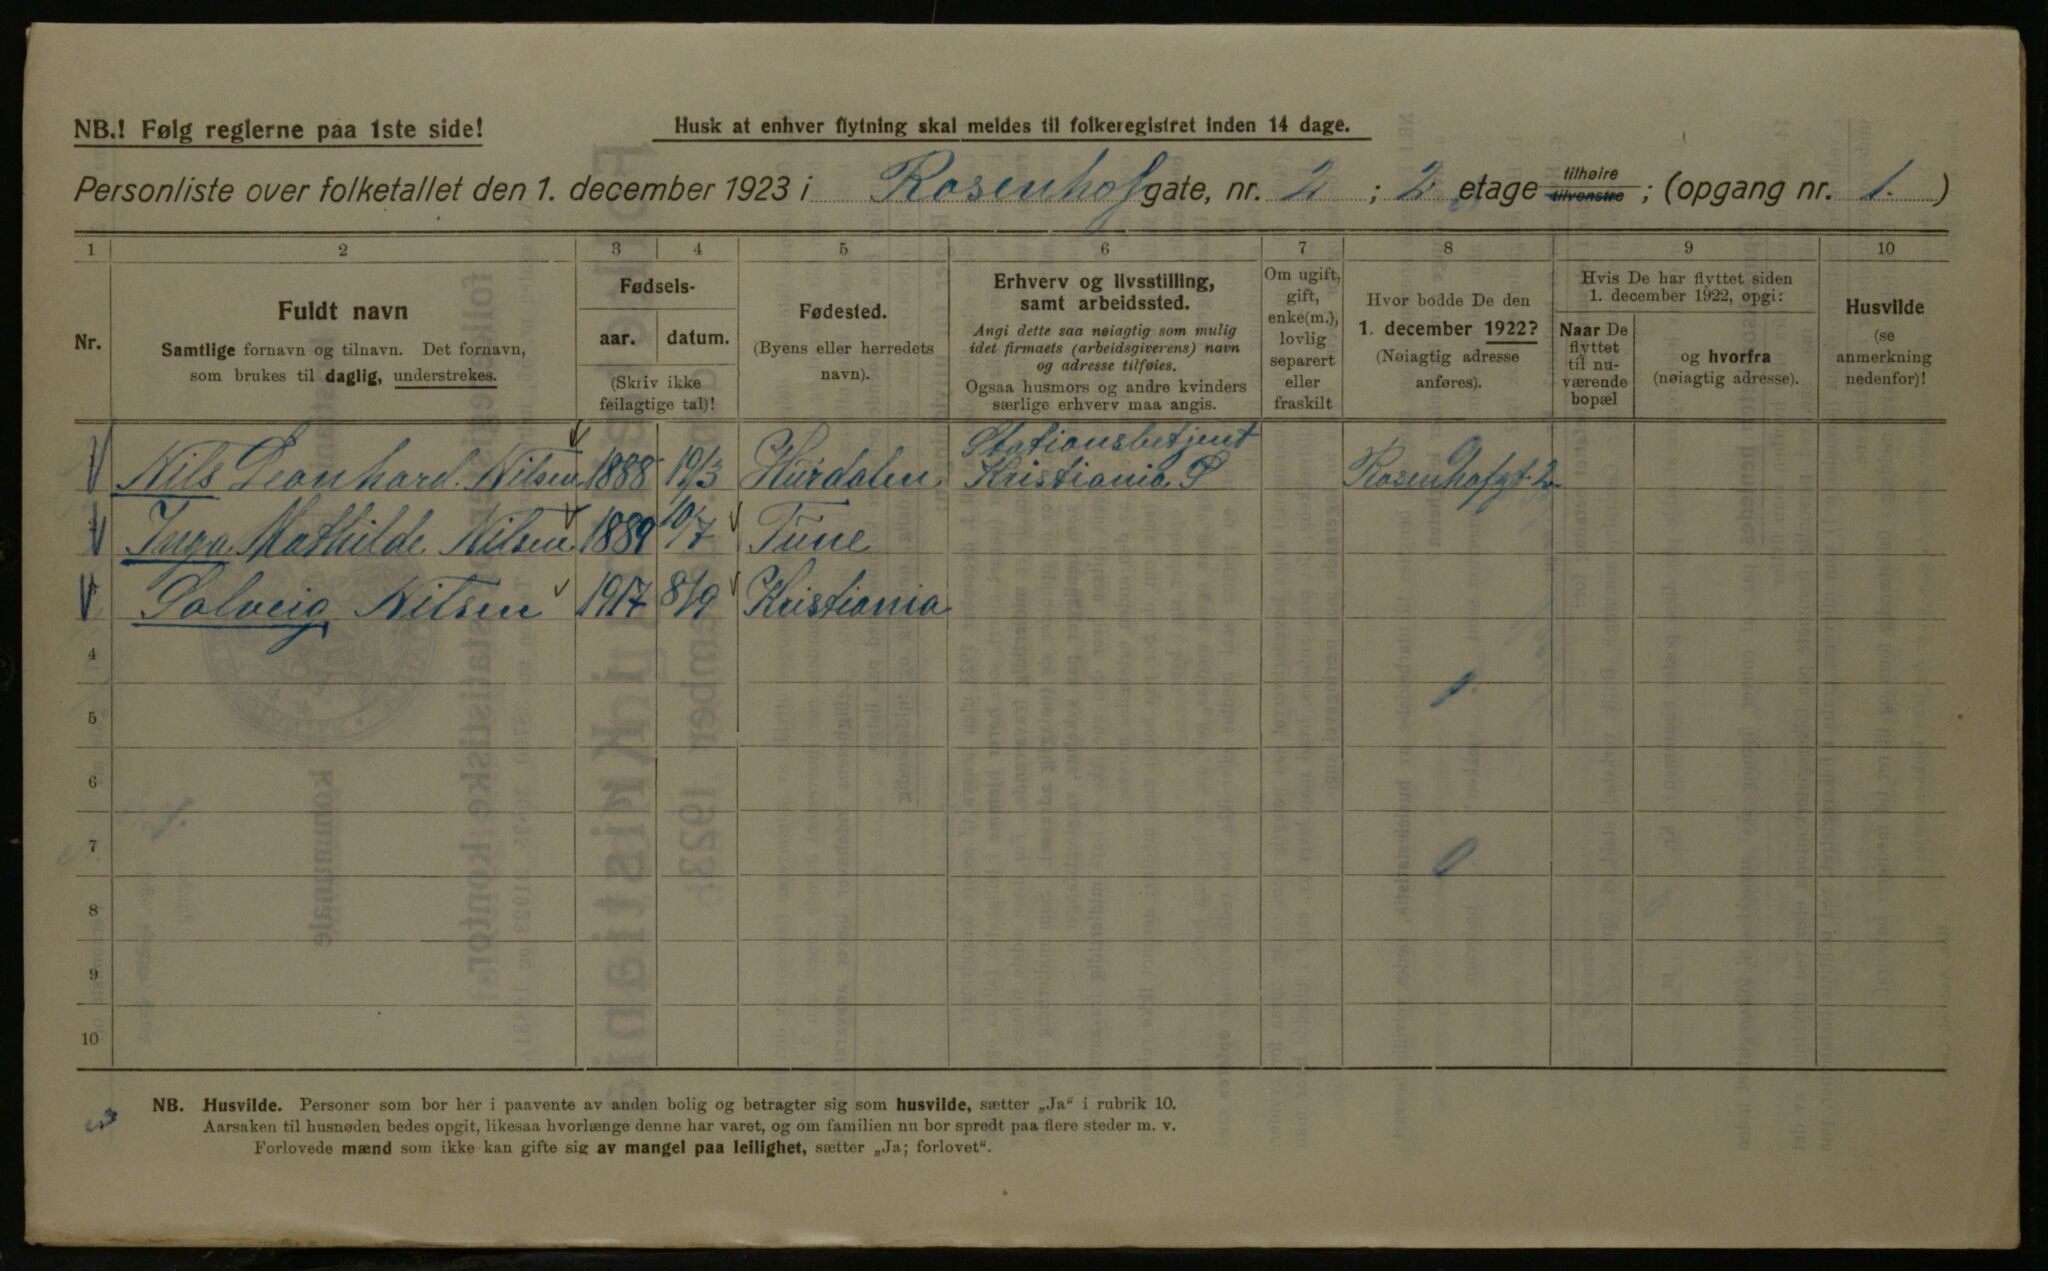 NB.! Følg reglerne paa 1ste side!
Husk at enhver flytning skal meldes til folkeregistret inden 14 dage.
Personliste over folketallet den 1. december 1923 i Rosenhofgate, nr. 2 ; 2 etage tilhøire tilvenstre ; (opgang nr. 1.)
1 2 3 4 5 6 7 8 9 10
Nr.
Fuldt navn
Samtlige fornavn og tilnavn. Det fornavn,
som brukes til daglig, understrekes.
Fødsels-
aar. datum.
(Skriv ikke
feilagtige tal)!
Fødested.
(Byens eller herredets
navn).
Erhverv og livsstilling,
samt arbeidssted.
Angi dette saa nøiagtig som mulig
idet firmaets (arbeidsgiverens) navn
og adresse tilføies.
Ogsaa husmors og andre kvinders
særlige erhverv maa angis.
Om ugift,
gift,
enke(m.),
lovlig
separert
eller
fraskilt
Hvor bodde De den
1. december 1922?
(Nøiagtig adresse
anføres).
Hvis De har flyttet siden
1. december 1922, opgi:
Naar De
flyttet
til nu-
værende
bopæl
og hvorfra
(nøiagtig adresse).
Husvilde
(se
anmerkning
nedenfor)!
Nils Leonhard Nilsen 1888 19/3 Hurdalen Stationsbetjent
Kristiania Ø Rosenhofgt. 2
Inga Mathilde Nilsen 1889 10/7 Tune
Solveig Nilsen 1917 8/9 Kristiania
4
5
6
7
8
9
10
NB. Husvilde. Personer som bor her i paavente av anden bolig og betragter sig som husvilde, sætter „Ja" i rubrik 10.
Aarsaken til husnøden bedes opgit, likesaa hvorlænge denne har varet, og om familien nu bor spredt paa flere steder m. v.
Forlovede mænd som ikke kan gifte sig av mangel paa leilighet, sætter „Ja; forlovet".